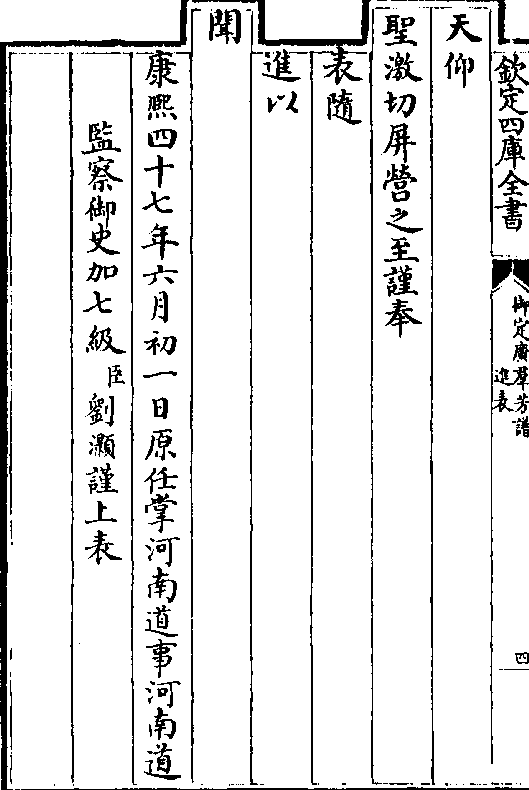 欽定四庫全書
御定廣羣芳譜
進表
四
天仰
聖激切屏營之至謹奉
表隨
進以
聞
康熙四十七年六月初一日原任掌河南道事河南道
監察御史加七級臣劉灝謹上表